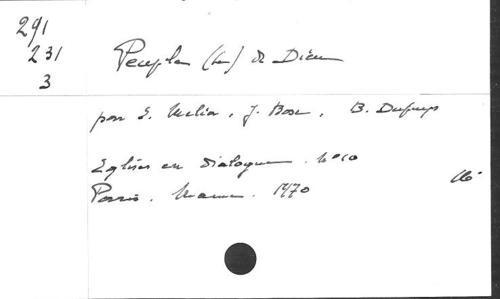 291
231
3
Peuple (Le) de Dieu
par E. Melia, J. Bosc, B. Dupuy
Eglises en Dialogue. N° 10
Paris. Mame. 1970